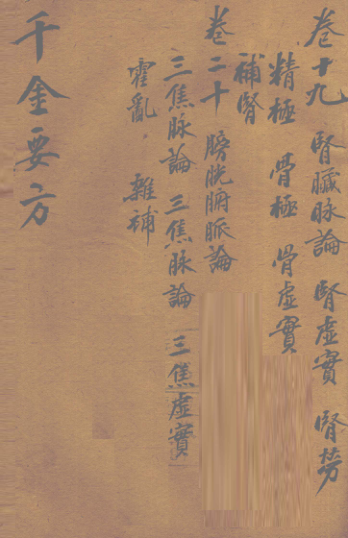 卷十九 腎臟脉論 腎虛實 腎勞
精極 骨極 骨虛實
補腎
卷二十 膀胱腑脈論
三焦脉論 三焦脉論 三焦虛實
霍亂 雜補
千金要方